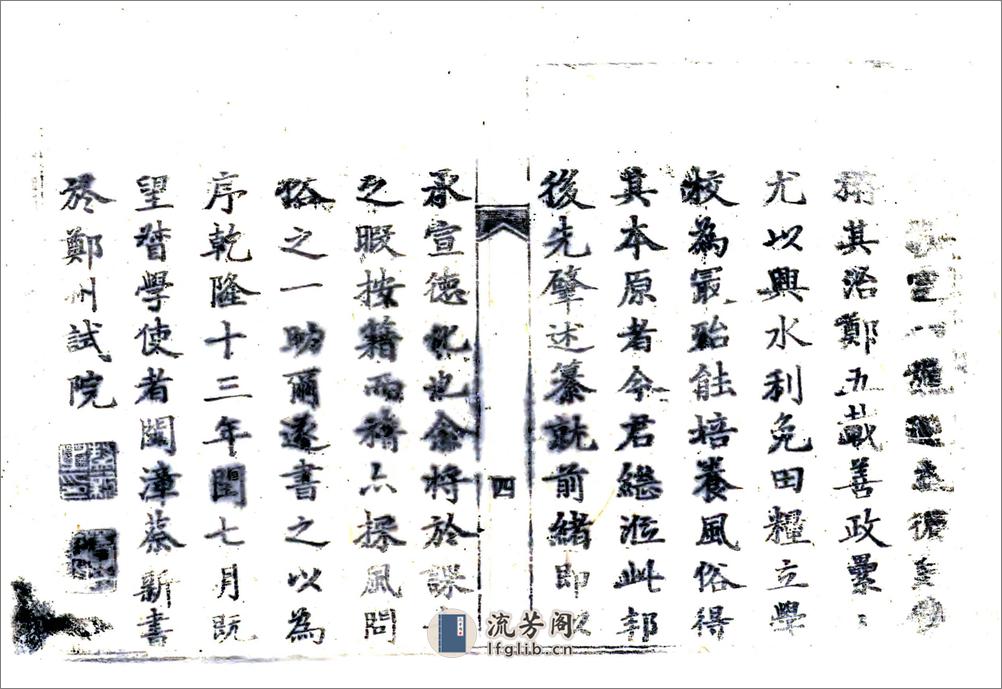 其治鄭五載善政纍〻
尤以興水利免田糧立學
校為最殆能培養風俗得
其本原者今君繼涖此邦
後先肇述纂就前緒即
四
承宣德化也余將於課
之暇按籍而稽亦採風問
俗之一助爾遂書之以為
序乾隆十三年閏七月既
望督學使者閩漳蔡新書
於鄭州試院
流芳阁
lfglib.cn